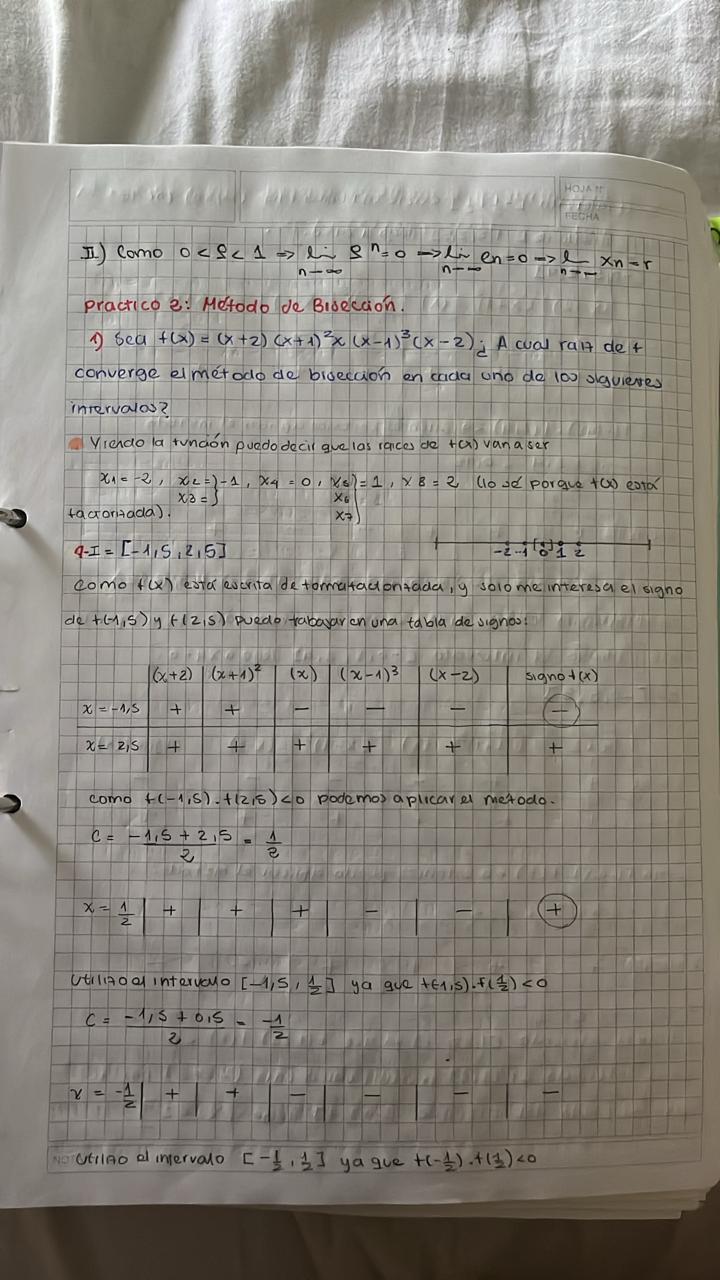 HOJA Nº
FECHA
II) Como 0 < ρ < 1 ⇒ lim n→∞ ρ^n = 0 ⇒ lim n→∞ en = 0 ⇒ lim n→∞ xn = r
Practico 2: Método de Bisección.
1) Sea f(x) = (x+2)(x+1)²x(x-1)³(x-2) ¿A cual raíz de f
converge el método de bisección en cada uno de los siguientes
intervalos?
Viendo la función puedo decir que las raíces de f(x) van a ser
x1 = -2, x2 =} -1, x4 = 0, x5} = 1, x8 = 2 (lo sé porque f(x) está
x3 =} x6}
factorizada). x7}
a-I = [-1,5, 2,5] -2 -1 0 1 2
Como f(x) está escrita de forma factorizada, y solo me interesa el signo
de f(-1,5) y f(2,5) puedo trabajar en una tabla de signos:
(x+2) | (x+1)² | (x) | (x-1)³ | (x-2) | signo f(x)
x = -1,5 | + | + | - | - | - | -
x = 2,5 | + | + | + | + | + | +
como f(-1,5) . f(2,5) < 0 podemos aplicar el metodo.
C = (-1,5 + 2,5)/2 = 1/2
x = 1/2 | + | + | + | - | - | +
Utilizo el intervalo [-1,5, 1/2] ya que f(-1,5).f(1/2) < 0
C = (-1,5 + 0,5)/2 = -1/2
x = -1/2 | + | + | - | - | - | -
Utilizo el intervalo [-1/2, 1/2] ya que f(-1/2).f(1/2) < 0